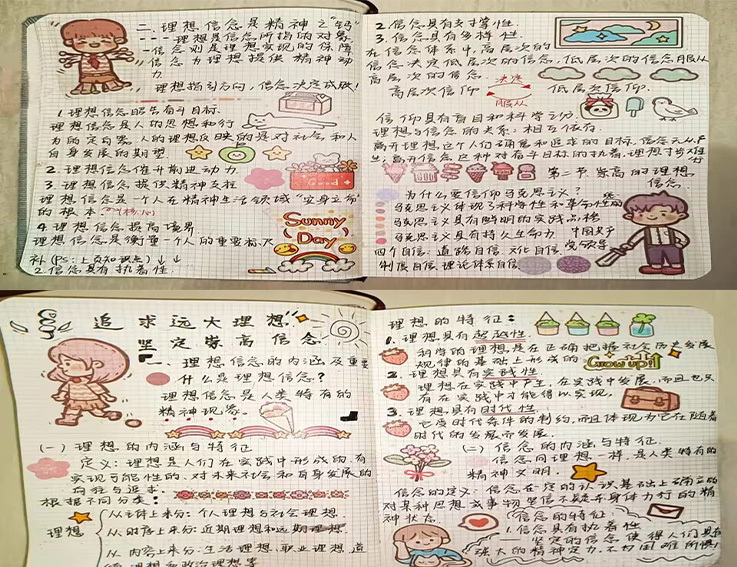 二、理想信念是精神之"钙"
理想是信念所指的对象
信念则是理想实现的保障
信念为理想提供精神动
力
理想指引方向,信念决定成败!
1.理想信念昭告奋斗目标
理想信念是人的思想和行
为的定向器,人的理想反映的是对社会和人
自身发展的期望
2.理想信念催开前进动力
3.理想信念提供精神支柱
Good
理想信念是一个人在精神生活领域"安身立命"
的根本
4.理想信念提高境界
理想信念是衡量一个人的重要标尺
Sunny
Day
补(Ps:上页知识点)↓↓
2.信念具有执着性
2.信念具有支撑性
3.信念具有多样性.
在信念体系中,高层次的
信念决定低层次的信念,低层次的信念服从
高层次的信念.
高层次信仰 决定 低层次信仰.
服从
信仰具有盲目和科学之分.
理想与信念的关系:相互依存.
离开理想这个人们确信和追求的目标,信念无从产
生;离开信念这种对奋斗目标的执着,理想寸步难行
第二节 崇高的理想
信念.
为什么要信仰马克思主义?
马克思主义体现了科学性和革命性的
马克思主义具有鲜明的实践品格
马克思主义具有持久生命力
中国共产
党领导
四个自信:道路自信 文化自信
制度自信 理论体系自信
追求远大理想
坚定崇高信念
一、理想信念的内涵及重要
什么是理想信念?
理想信念是人类特有的
精神现象.
(一)理想的内涵与特征
定义:理想是人们在实践中形成的、有
实现可能性的、对未来社会和自身发展的
向往与追求
根据不同分类:
理想
从主体上来分:个人理想与社会理想
从时序上来分:近期理想和远期理想
从内容上来分:生活理想、职业理想、道
德理想和政治理想等
理想的特征:
1.理想具有超越性.
科学的理想是在正确把握社会历史发展
规律的基础上形成的
Grow up!
2.理想具有实践性
理想在实践中产生,在实践中发展,而且也只
有在实践中才能得以实现.
3.理想具有时代性.
它受时代条件的制约,而且体现为它在随着
时代的发展而发展.
(二)信念的内涵与特征.
信念同理想一样,是人类特有的
精神文明.
信念的定义:信念在一定的认识基础上确立的
对某种思想或事物坚信不疑并身体力行的精
神状态.
信念的特征:
1.信念具有执着性
坚定的信念使得人们具有
强大的精神定力,不为困难所惧